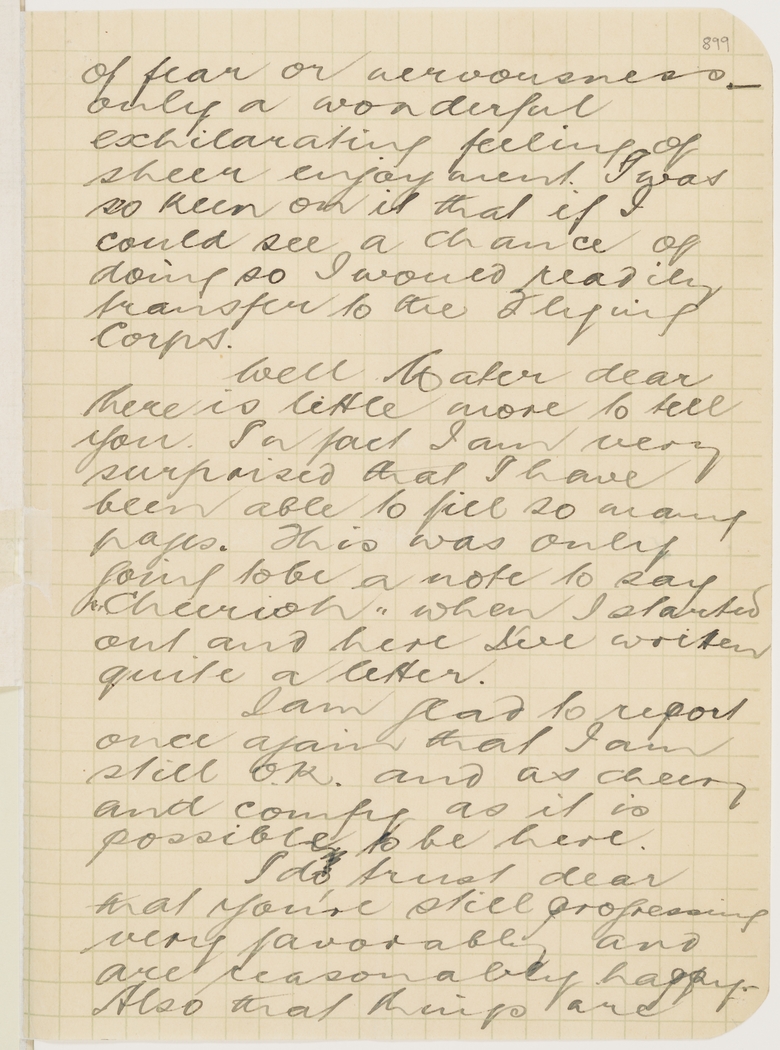 899
of fear or nervousness_
only a wonderful
exhilarating feeling of
sheer enjoyment. I was
so keen on it that if I
could see a chance of
doing so I would readily
transfer to the Flying
Corps.
Well Mater dear
there is little more to tell
you. In fact I am very
surprised that I have
been able to fill so many
pages. This was only
going to be a note to say
"Cheerioh" when I started
out and here I've writen
quite a letter.
I am glad to report
once again that I am
still O.K. and as cheery
and comfy as it is
possible to be here.
I do trust dear
that you're still progressing
very favorably and
are reasonably happy.
Also that things are